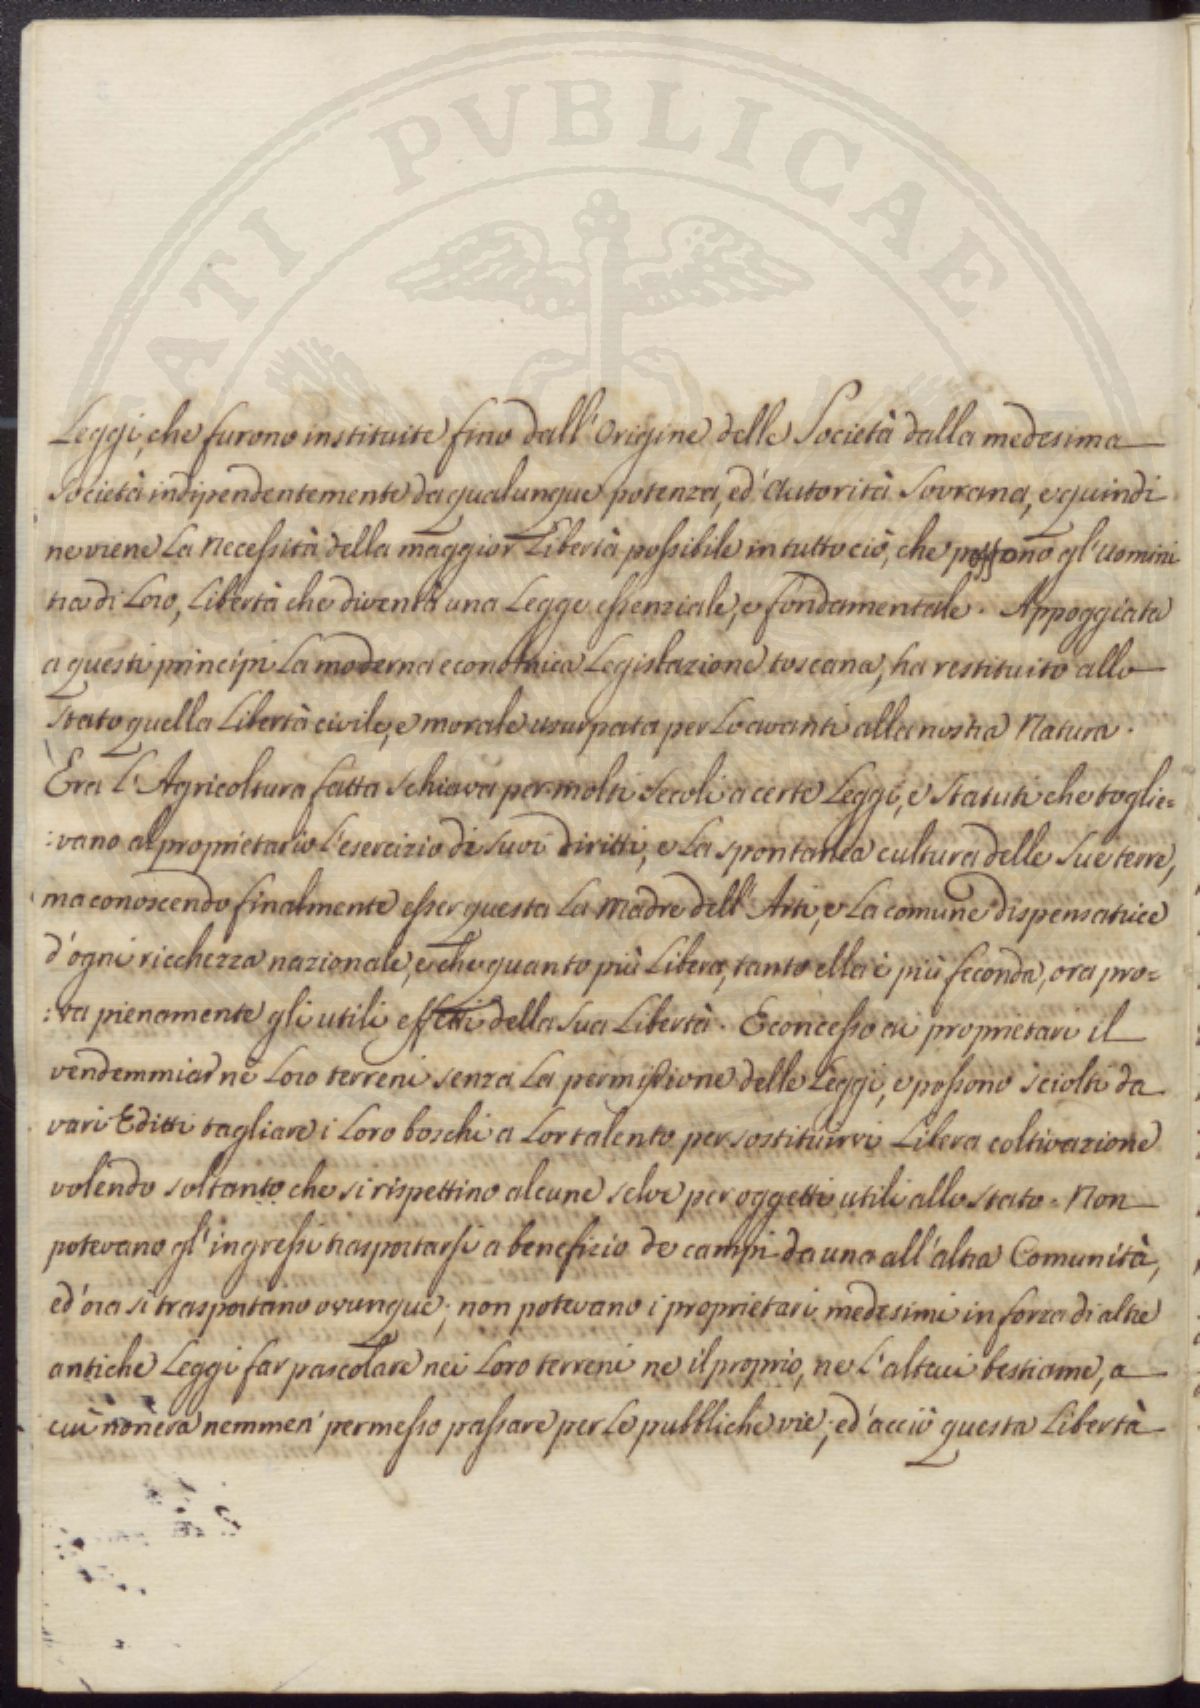 PVBLICAE
Leggi, che furono instituite fino dall'Origine delle Società dalla medesima
Società indipendentemente da qualunque potenza, ed'Autorità Sovrana, e quindi
ne viene la Necessità della maggior Libertà possibile in tutto ciò, che possono gl'Uomini
tra di Loro, Libertà che diventa una Legge essenziale, e fondamentale. Appoggiata
a questi principi La moderna economica Legislazione toscana, ha restituito allo
Stato quella Libertà civile, e morale usurpata per Lo avanti alla nostra Natura.
Era l'Agricoltura fatta schiava per molti Secoli a certe Leggi, e Statuti che toglie=
:vano al proprietario L'esercizio di suoi diritti, e La spontanea cultura delle Sue terre,
ma conoscendo finalmente esser questa La Madre dell'Arti, e La comune dispensatrice
d'ogni ricchezza nazionale, e che quanto più Libera, tanto ella è più feconda, ora pro=
:va pienamente gli utili effetti della Sua Libertà. E concesso ai proprietari il
vendemmiar ne Loro terreni senza La permissione delle Leggi, e possono sciolti da
vari Editti tagliare i Loro boschi a Lor talento per sostituirvi Libera coltivazione
volendo soltanto che si rispettino alcune selve per oggetti utili allo Stato. Non
potevano gl'ingressi trasportarsi a benefizio de campi da una all'altra Comunità,
ed'ora si trasportano ovunque; non potevano i proprietari medesimi in forza di altre
antiche Leggi far pascolare nei Loro terreni ne il proprio, ne L'altrui bestiame, a
cui non era nemmen' permesso passare per Le pubbliche vie; ed'acciò questa Libertà